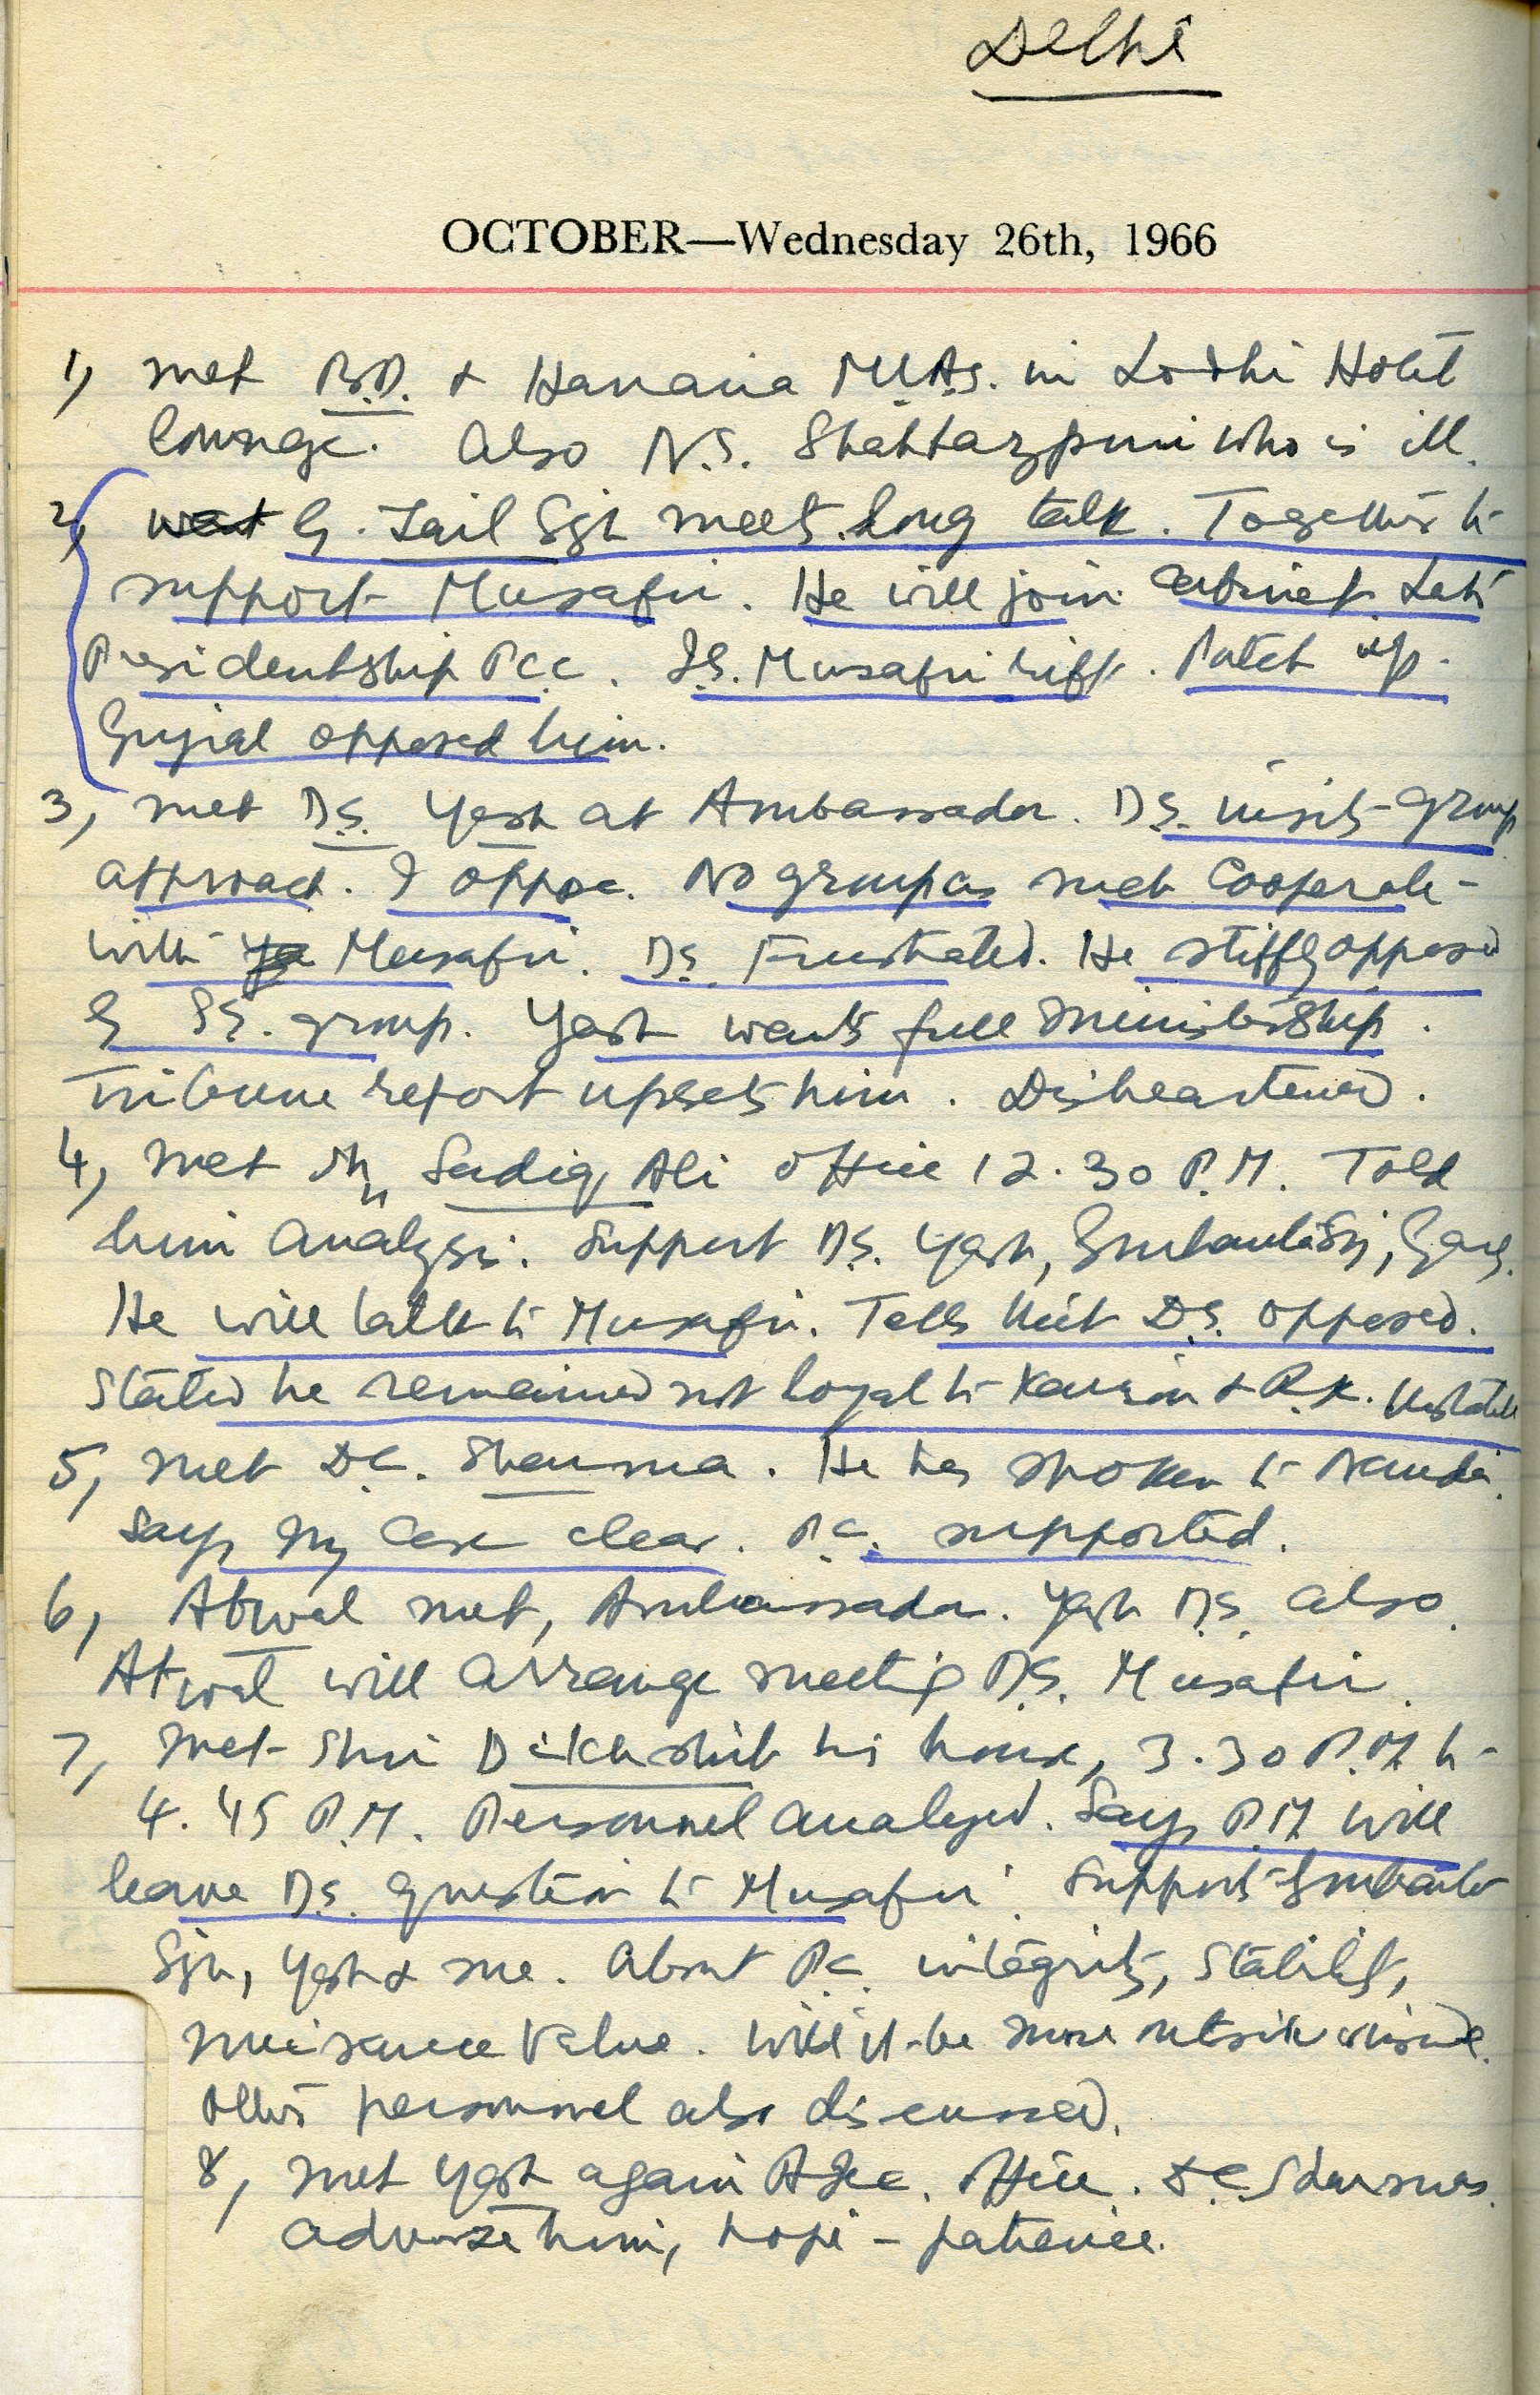 Delhi
OCTOBER—Wednesday 26th, 1966
1, met B.D. & Harrana M.L.As. in Lodhi Hotel
lounge. Also N.S. who is ill.
2, went G. Zail Sgh meets. long talk. Together to
support Musafir. He will join Cabinet. Let
Presidentship P.C.C. Musafir rift. Patch up.
Gujral opposed him.
3, met D.S. Yash at Ambassador. D.S. insists group
approach. I oppose. No group as such cooperate
with Ya Musafir. D.S. Frustrated. He stiffly opposed
G SS. group. Yash wants full ministership.
Tribune report upsets him. Disheartened.
4, met Mr Sadiq Ali office 12.30 P.M. Told
him analysis. Support D.S. Yash, Gurbanta Sgh, Garg.
He will talk to Musafir. Tells that D.S. opposed.
Stated he remained not loyal to Kairon & R.K. Unstable
5, met D.C. Sharma. He has spoken to Nanda.
Says my case clear. P.C. supported.
6, Atwal met, Ambassador. Yash D.S. also.
Atwal will arrange meeting D.S. Musafir.
7, met Shri Dikhshit his house, 3.30 P.M to
4.45 P.M. Personnel analysed. Says P.M will
leave D.S. question to Musafir. Supports Gurbanta
Sgh, Yash & me. About P.C. integrity, stability,
nuisance value. Will it be more outside or inside.
Other personnel also discussed.
8, met Yash again office. D.C. Sharmas.
advise him, hope – patience.